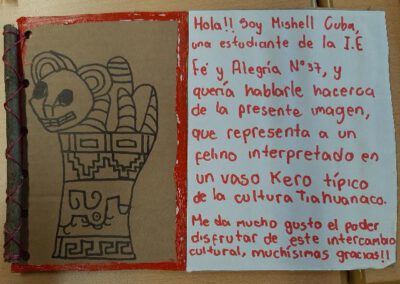 Hola!! Soy Mishell Cuba,
una estudiante de la I.E
Fé y Alegría N°37, y
quería hablarle hacerca
de la presente imagen,
que representa a un
felino interpretado en
un vaso Kero típico
de la cultura Tiahuanaco.
Me da mucho gusto el poder
disfrutar de este intercambio
cultural, muchísimas gracias!!